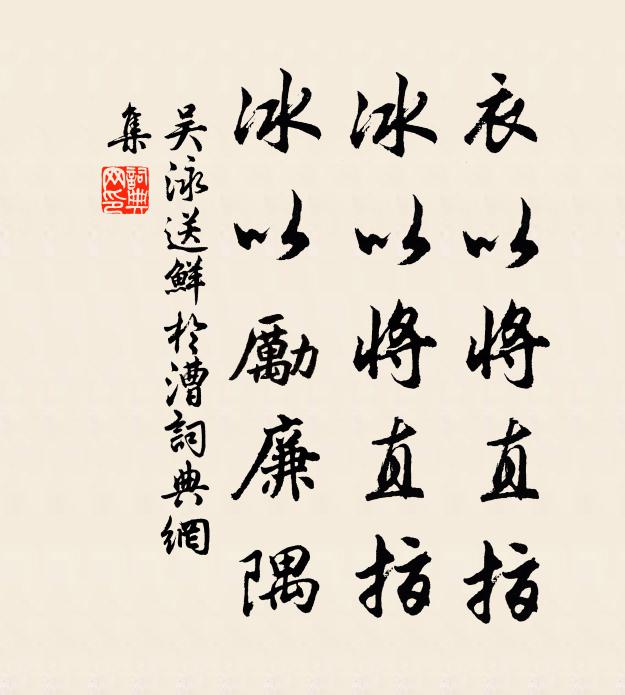 衣以將直指
冰以將直指
冰以勵廉隅
吴泳送鮮於漕詞典網
集
詞典
网印